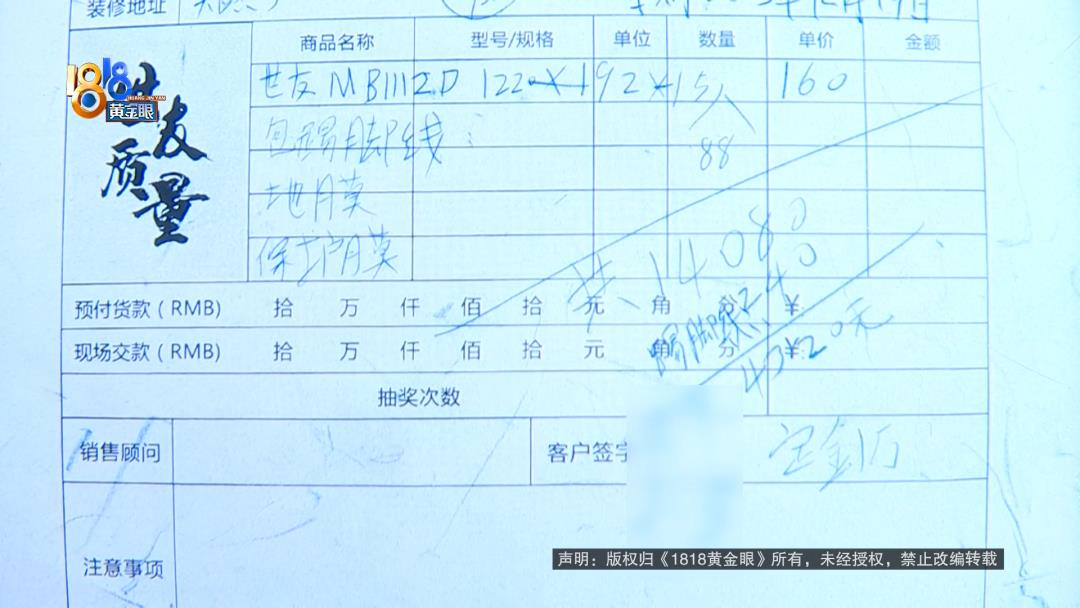 装修地址
商品名称 型号/规格 单位 数量 单价 金额
世友 MB1112D 1220×192×15 160
包踢脚线
88
地膜
保护膜
共14080
踢脚线240
14320元
世友
质量
1818
黄金眼
HUANG JIN YAN
预付货款(RMB) 拾 万 仟 佰 拾 元 角 分 ¥:
现场交款(RMB) 拾 万 仟 佰 拾 元 角 分 ¥:
抽奖次数
销售顾问 客户签字 定金1万
注意事项
声明：版权归《1818黄金眼》所有，未经授权，禁止改编转载